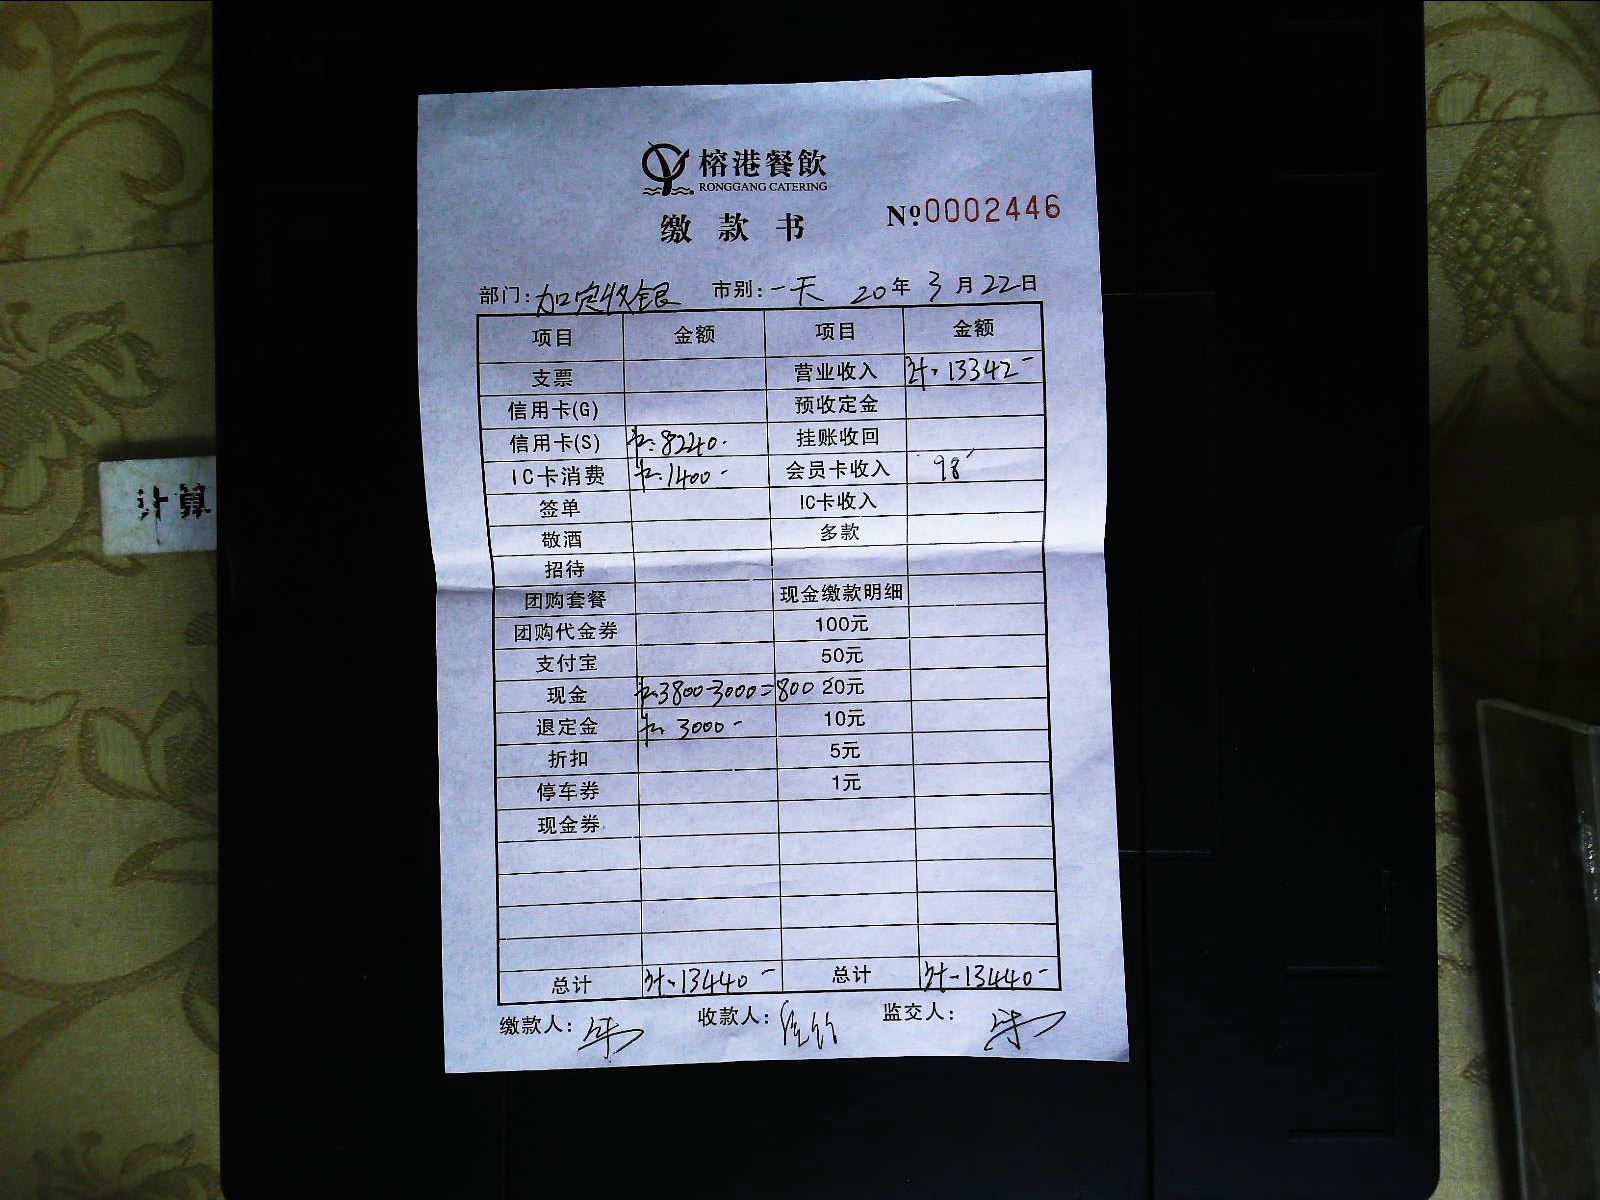 榕港餐飲
RONGGANG CATERING
缴款书
Nº0002446
部门: 加定收银 市别: 一天 20年3月22日
项目 金额 项目 金额
支票 营业收入 计. 13342-
信用卡(G) 预收定金
信用卡(S) 8240. 挂账收回
IC卡消费 1400- 会员卡收入 98
签单 IC卡收入
敬酒 多款
招待
团购套餐 现金缴款明细
团购代金券 100元
支付宝 50元
现金 3800-3000=800 20元
退定金 3000- 10元
折扣 5元
停车券 1元
现金券
总计 计. 13440- 总计 计- 13440-
缴款人: 收款人: 监交人:
计算